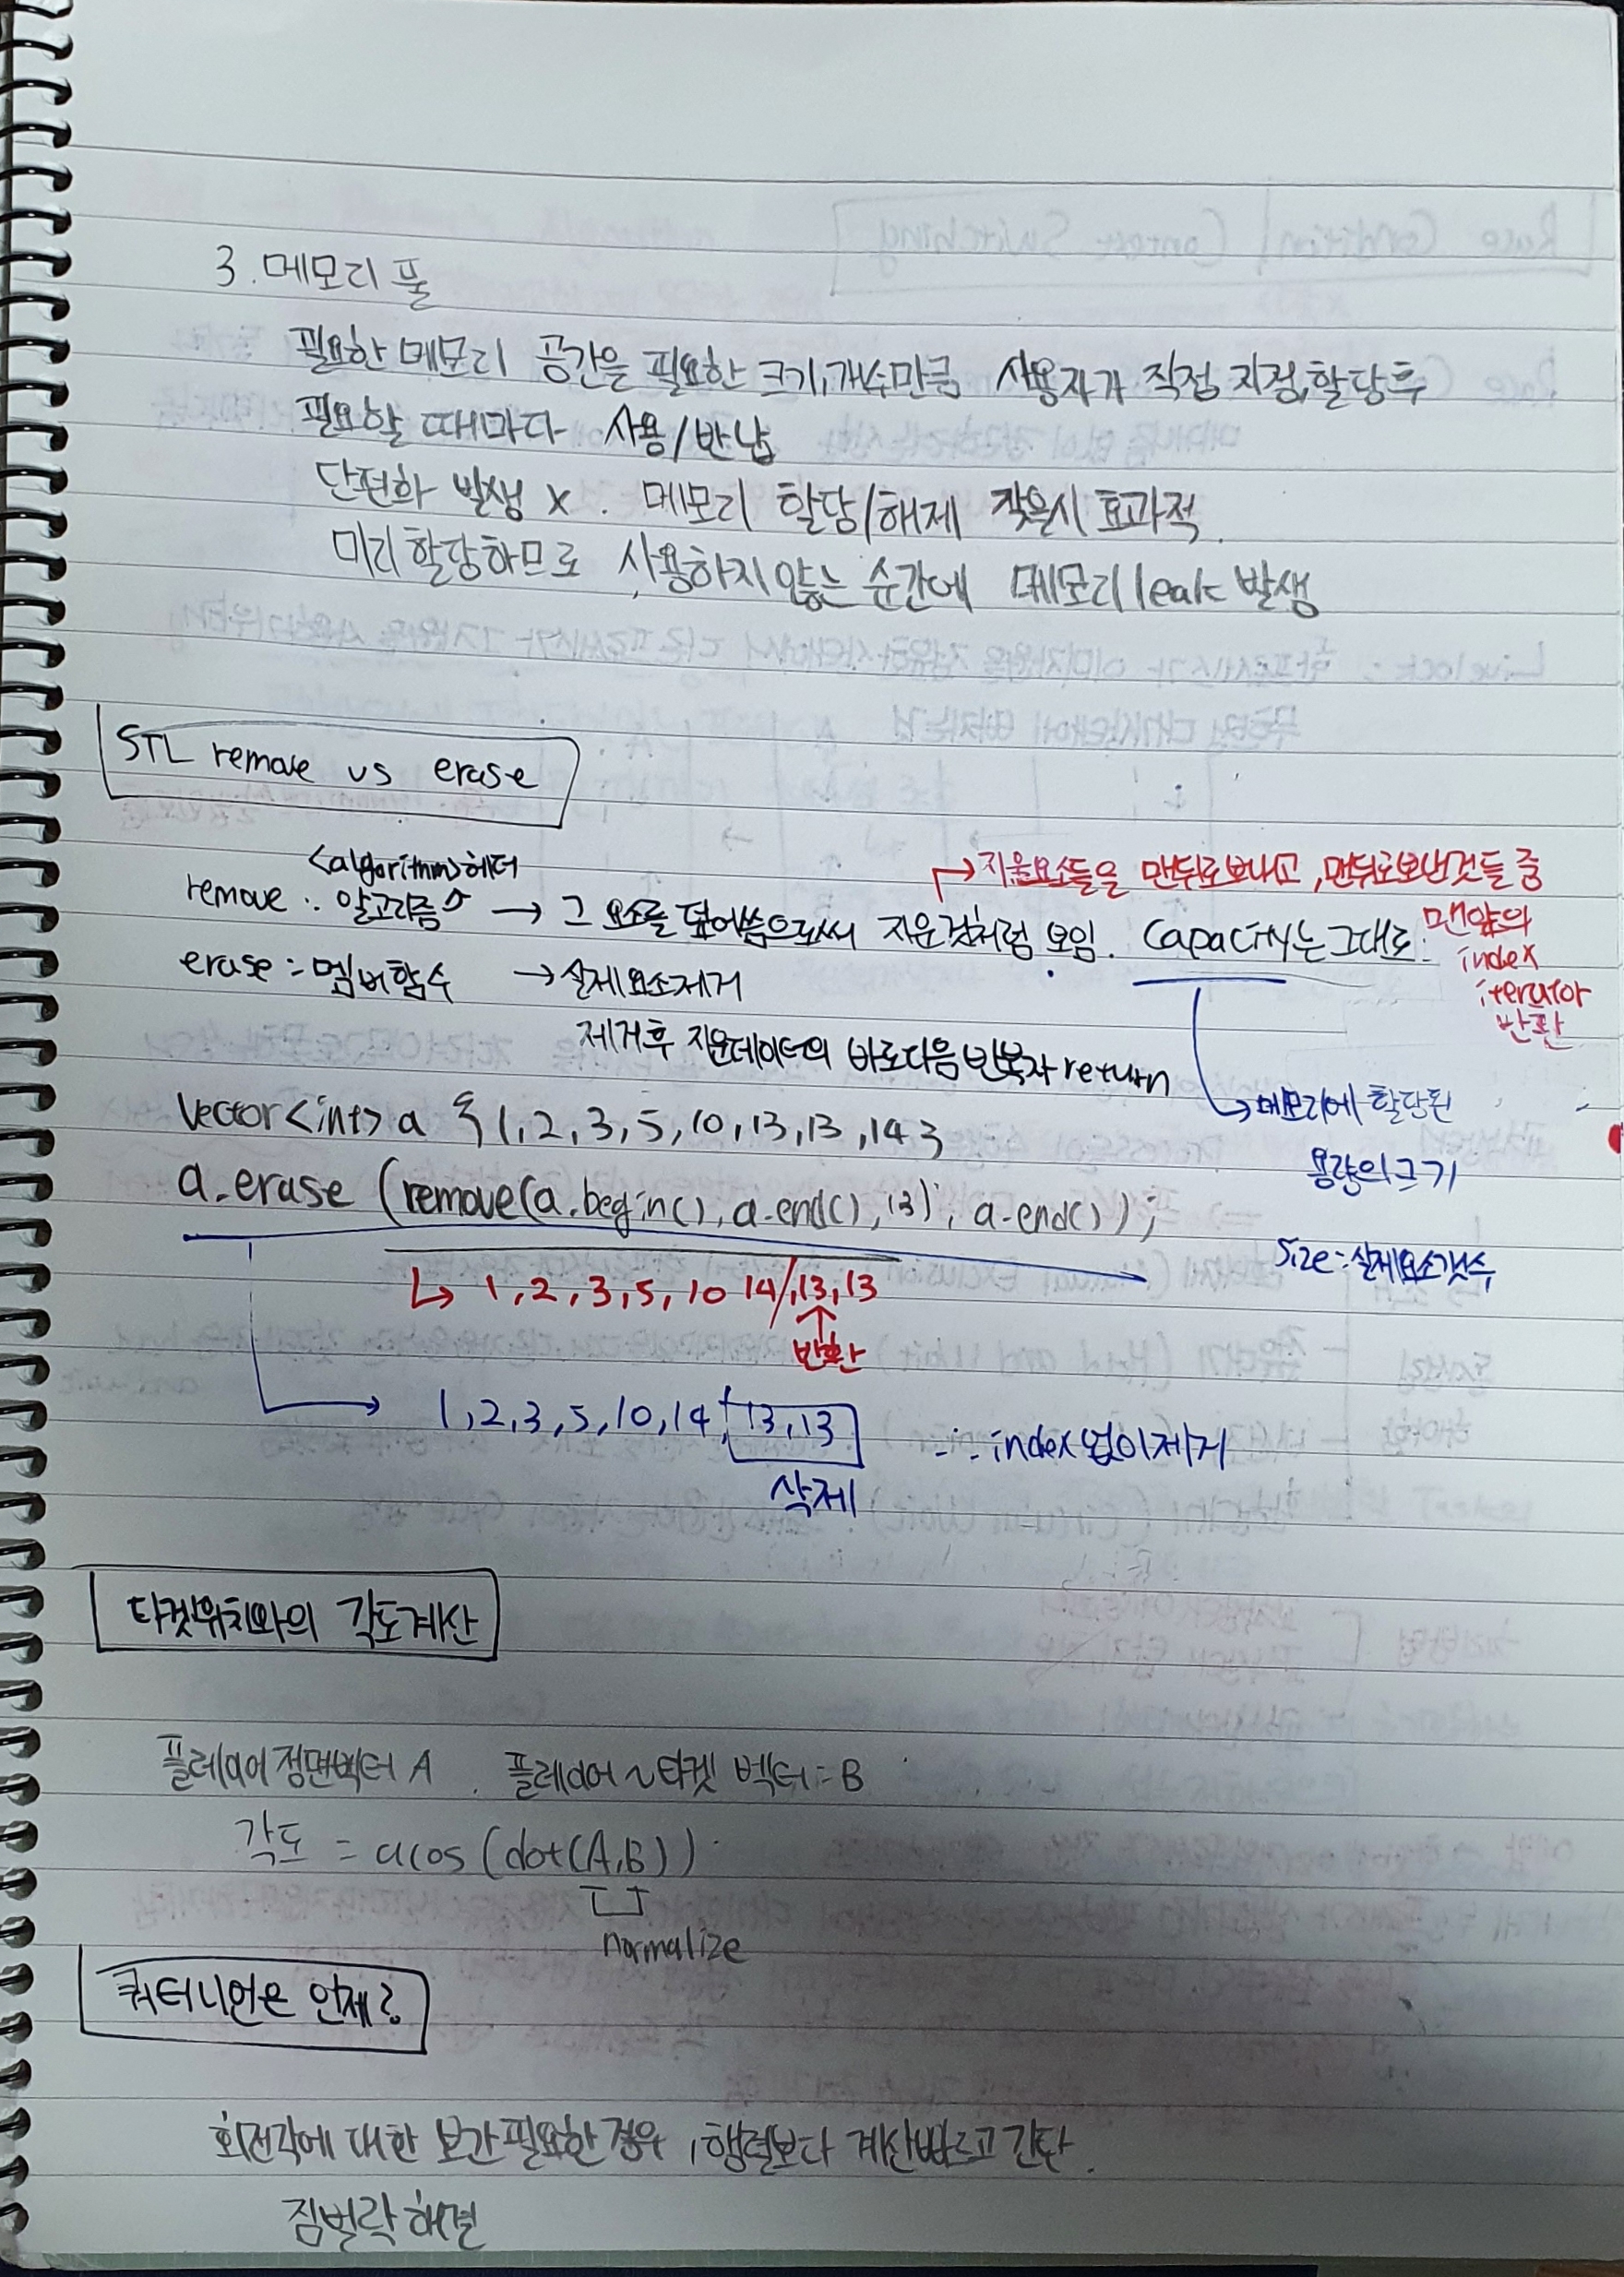 3. 메모리 풀
필요한 메모리 공간을 필요한 크기, 개수만큼 사용자가 직접 지정, 할당후
필요할 때마다 사용/반납
단편화 발생 x. 메모리 할당/해제 잦을시 효과적.
미리 할당하므로, 사용하지 않는 순간에 메모리 leak 발생
STL remove vs erase
<algorithm>헤더
→ 지울요소들을 맨뒤로보내고, 맨뒤로보낸것들 중
remove : 알고리즘 → 그 요소를 덮어씀으로써 지운것처럼 보임. Capacity는 그대로. 맨앞의
index
iterator
반환
erase : 멤버함수 → 실제요소제거
제거후 지운데이터의 바로다음 반복자 return
→ 메모리에 할당된
용량의크기
vector<int> a {1, 2, 3, 5, 10, 13, 13, 14}
a.erase (remove(a.begin(), a.end(), 13), a.end());
size : 실제요소갯수
↳ 1, 2, 3, 5, 10 14/, 13, 13
↑
반환
→ 1, 2, 3, 5, 10, 14, 13, 13 ∴ index 없이제거
삭제
타겟위치와의 각도계산
플레이어 정면벡터 A. 플레이어~타겟 벡터 = B
각도 = acos (dot(A,B))
normalize
쿼터니언은 언제?
회전각에 대한 보간필요한 경우, 행렬보다 계산빠르고 간단.
짐벌락 해결